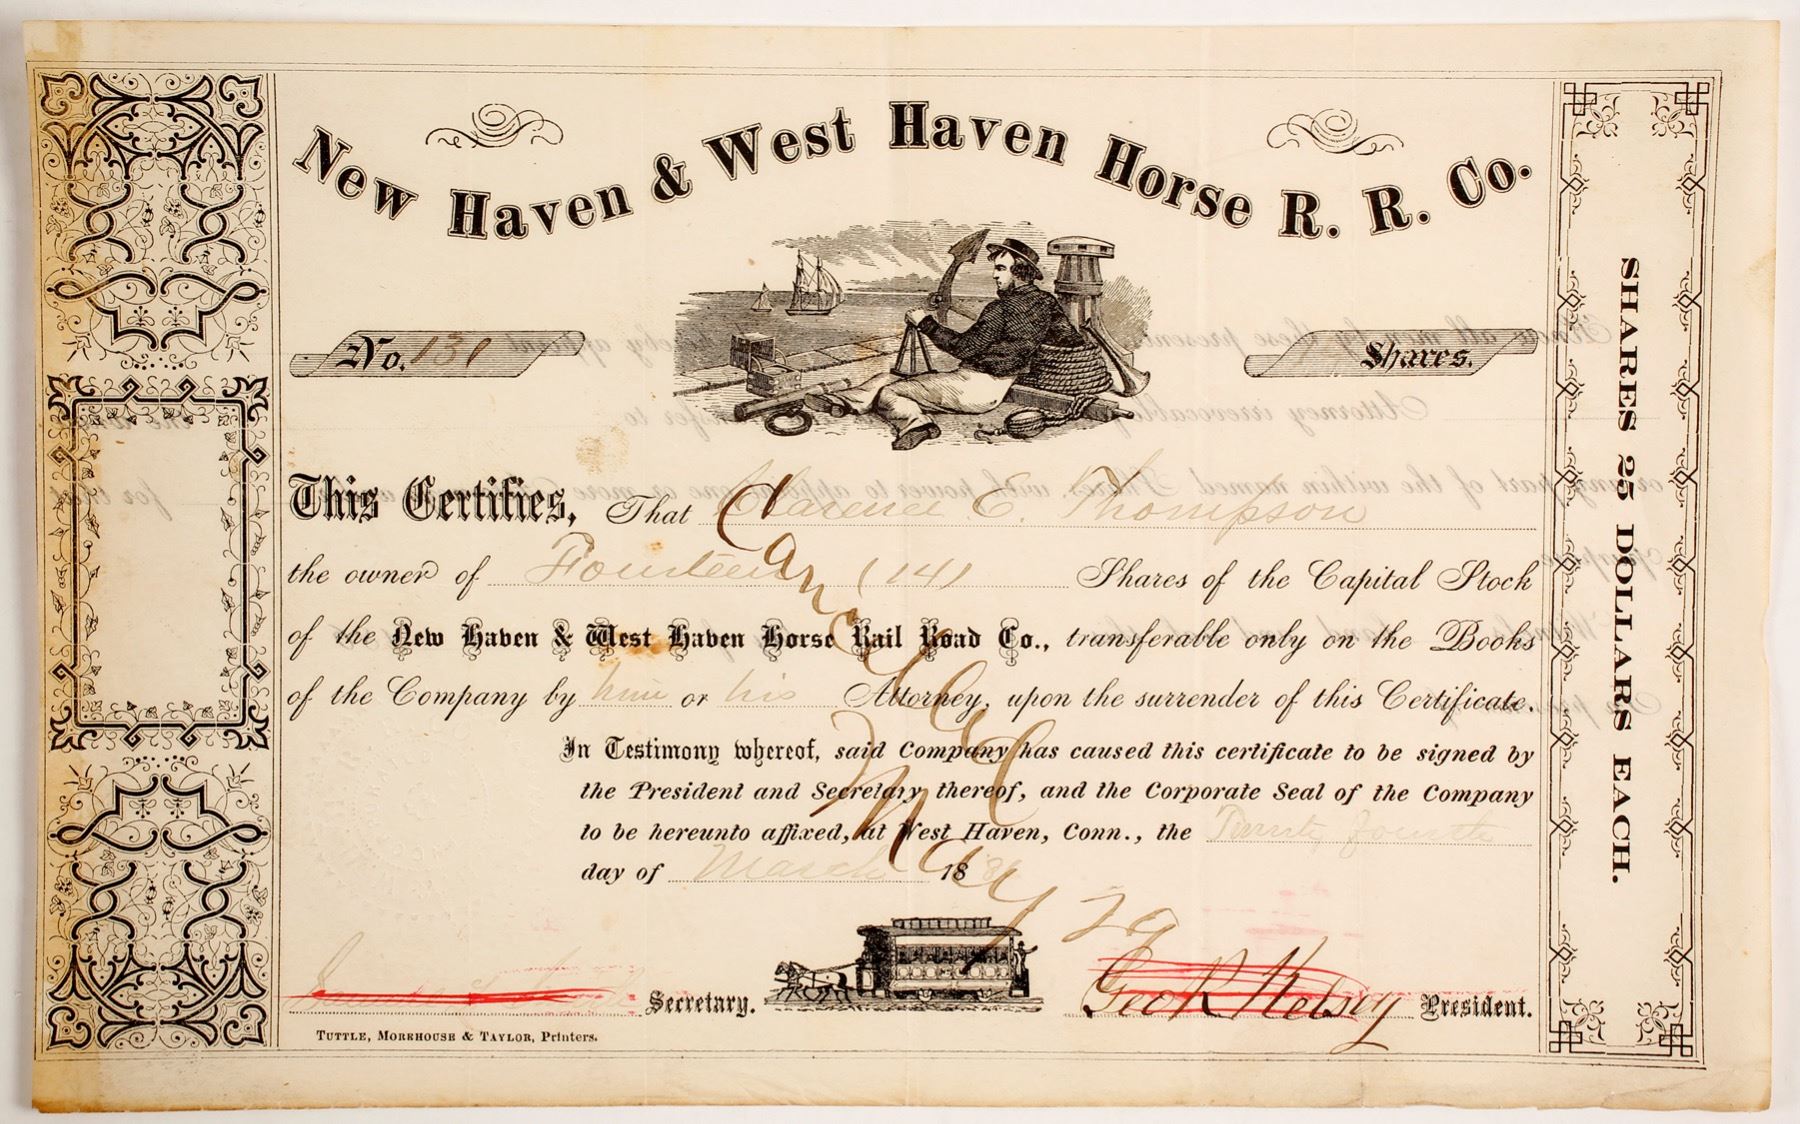 New Haven & West Haven Horse R. R. Co.
No. 131
Shares.
This Certifies, That Clarence E. Thompson
the owner of Fourteen (14) Shares of the Capital Stock
of the New Haven & West Haven Horse Rail Road Co., transferable only on the Books
of the Company by him or his Attorney, upon the surrender of this Certificate.
In Testimony whereof, said Company has caused this certificate to be signed by
the President and Secretary thereof, and the Corporate Seal of the Company
to be hereunto affixed, at West Haven, Conn., the Twenty fourth
day of March 18
Cancelled
May 29
Secretary.
Geo R Kelsey President.
Tuttle, Morehouse & Taylor, Printers.
SHARES 25 DOLLARS EACH.